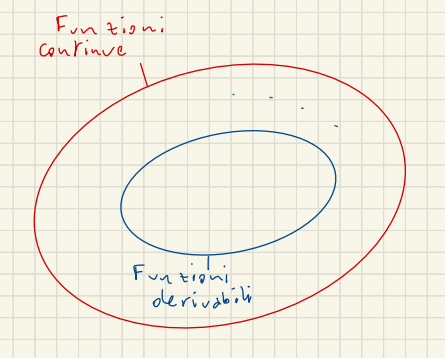 Funzioni
continue
Funzioni
derivabili